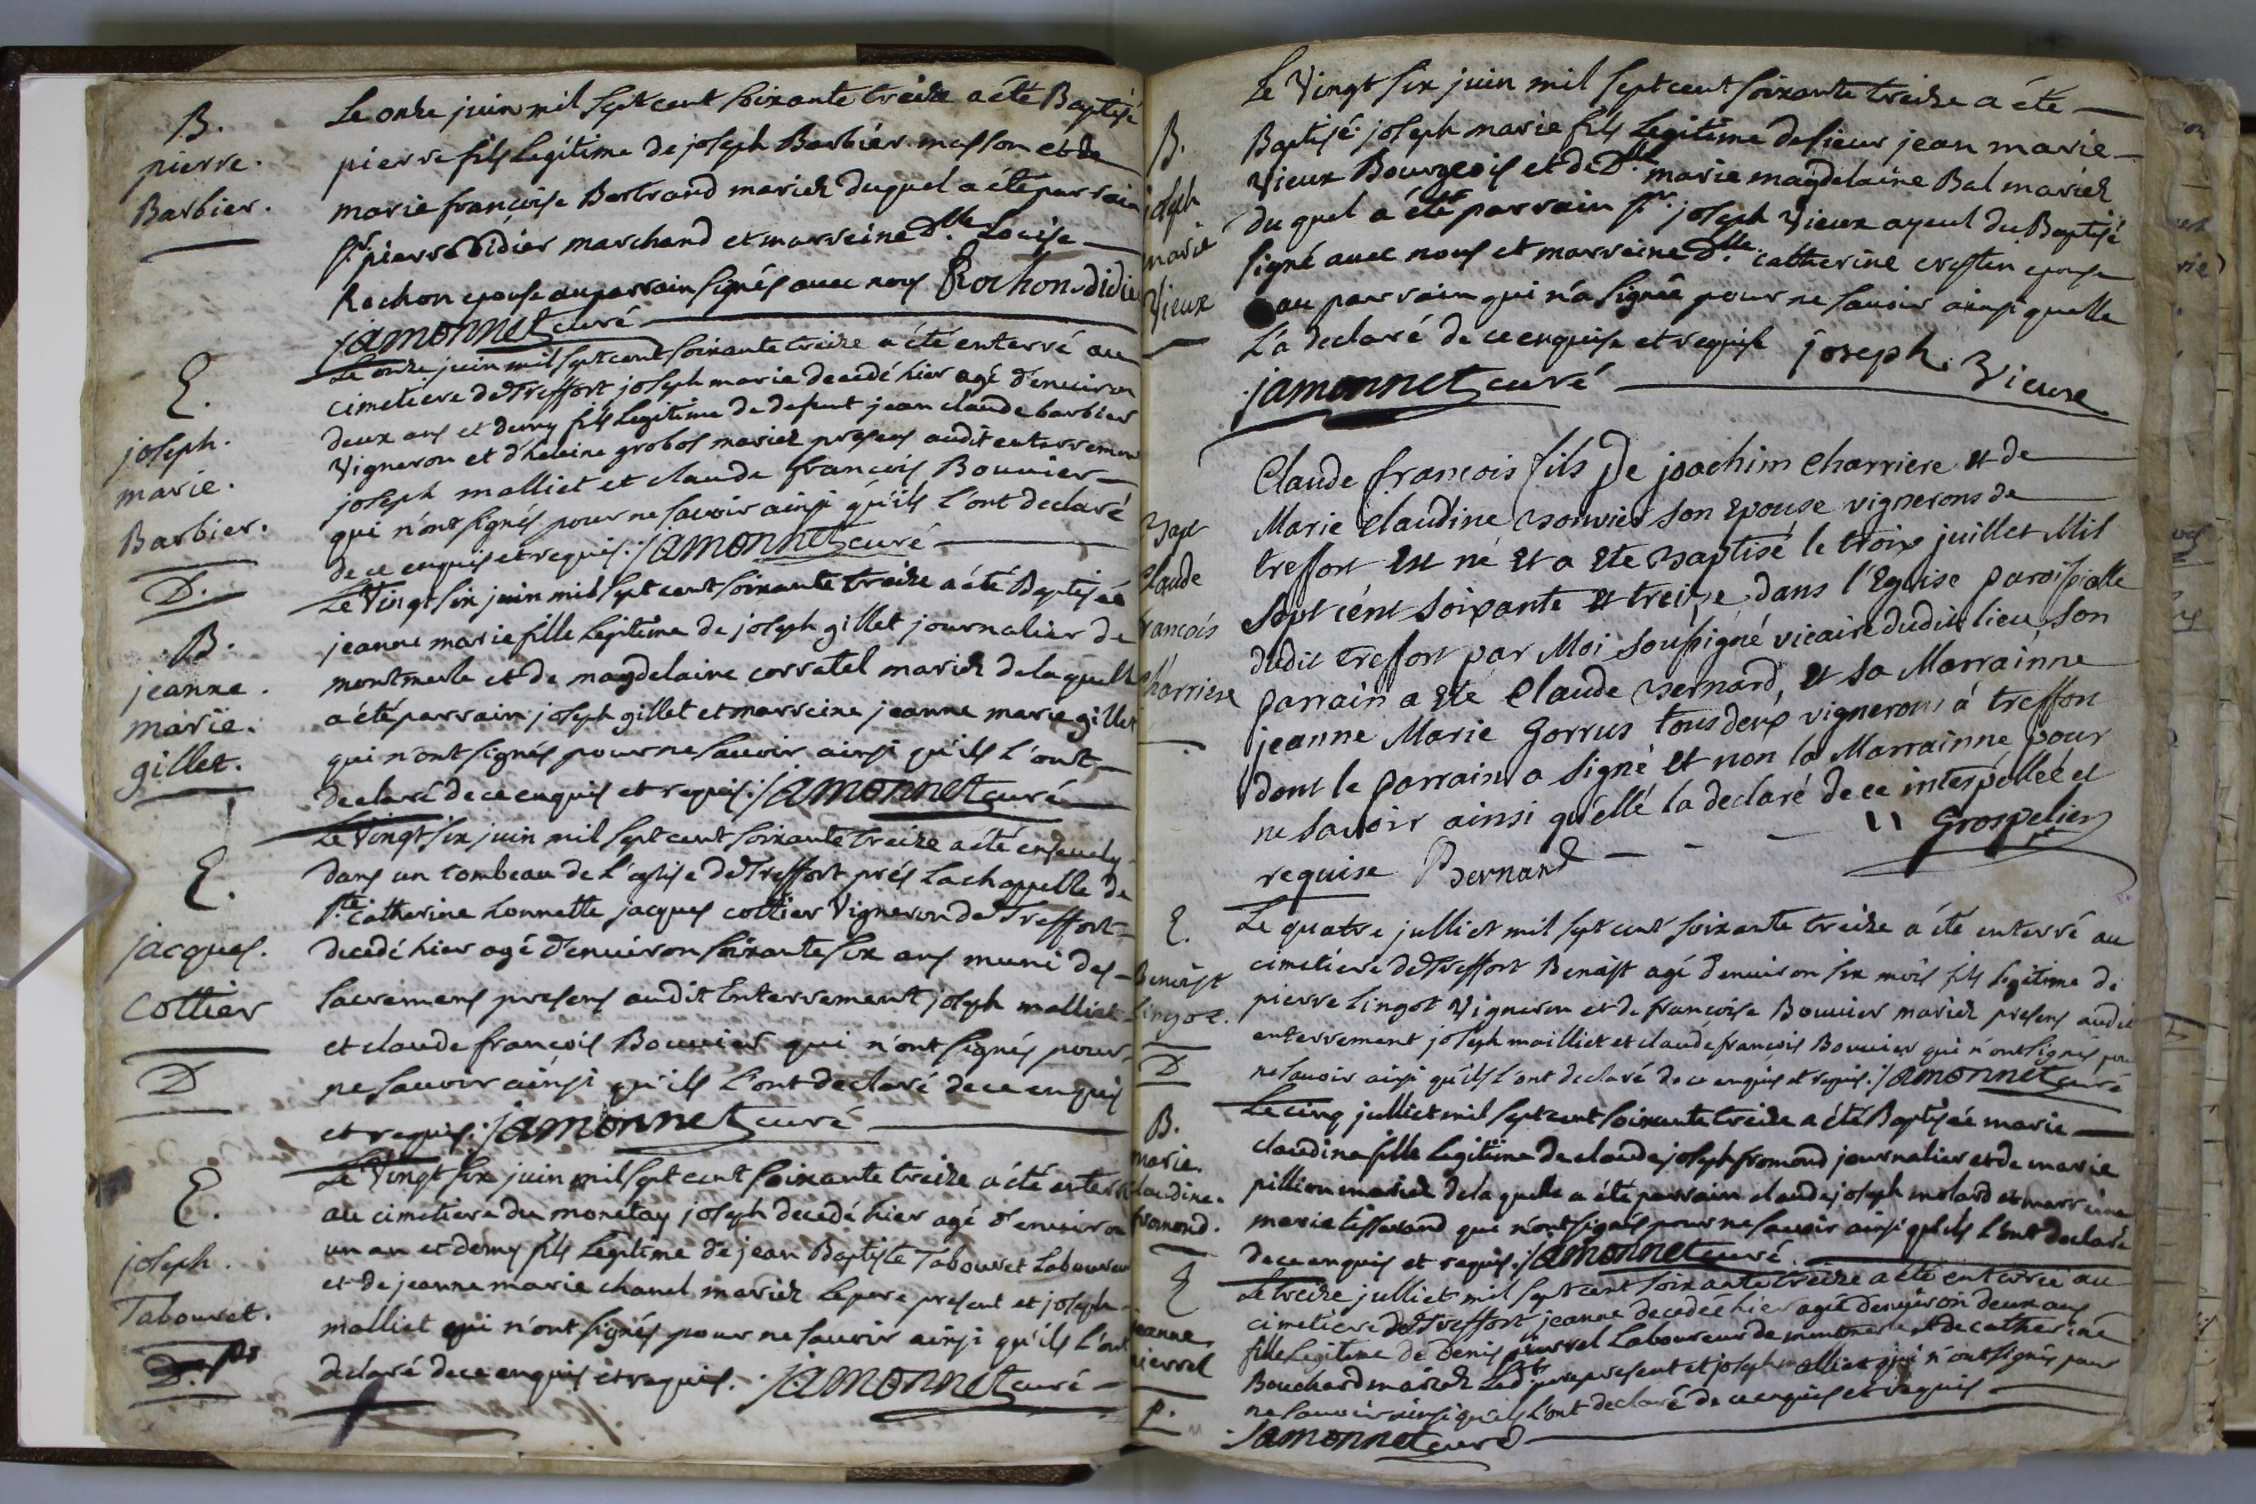 B.
pierre.
Barbier.
Le onze juin mil sept cent soixante treize a été Baptisé
pierre fils Legitime de joseph Barbier masson et de
marie francoise Bertrand mariez duquel a été parrain
sr. pierre didier marchand et marreine Dlle Louise
Rochon epouse au parrain signés avec nous Rochon. didie
jamonnet curé
E.
joseph.
marie.
Barbier.
D.
Le onze juin mil sept cent soixante treize a été enterré au
cimetiere de Treffort joseph marie decedé hier agé d'environ
deux ans et demy fils Legitime de defunt jean claude barbier
Vigneron et d'heleine grobos mariez presens audit enterrement
joseph malliet et claude francois Bouvier
qui n'ont signés pour ne savoir ainsi qu'ils l'ont declaré
de ce enquis et requis. jamonnet curé
B.
jeanne.
marie.
gillet.
Le Vingt six juin mil sept cent soixante treize a été Baptisée
jeanne marie fille Legitime de joseph gillet journalier de
montmerle et de magdelaine corratel mariez de laquelle
a été parrain joseph gillet et marreine jeanne marie gillet
qui n'ont signés pour ne savoir ainsi qu'ils l'ont
declaré de ce enquis et requis. jamonnet curé
E.
jacques.
Cottier
D
Le Vingt six juin mil sept cent soixante treize a été ensevely
dans un tombeau de l'aglise de Treffort prés La chappelle de
ste. catherine honnette jacques cottier Vigneron de Treffort
decedé hier agé d'environ soixante six ans muni des
sacremens presens audit Enterrement joseph malliet
et claude francois Bouvier qui n'ont signés pour
ne savoir ainsi qu'ils l'ont declaré de ce enquis
et requis. jamonnet curé
E.
joseph.
Tabouret.
Le Vingt six juin mil sept cent soixante treize a été enterré
au cimetiere du monetay joseph decedé hier agé d'environ
un an et demy fils Legitime de jean Baptiste Tabouret Laboureur
et de jeanne marie chanel mariez Le pere present et joseph
malliet qui n'ont signés pour ne savoir ainsi qu'ils l'ont
declaré de ce enquis et requis. jamonnet curé
B.
joseph
marie
Vieux
Le Vingt six juin mil sept cent soixante treize a été
Baptisé joseph marie fils Legitime de sieur jean marie
Vieux Bourgeois et de Dlle. marie magdelaine Bal mariez
du quel a été parrain sr. joseph Vieux ayeul du Baptisé
signé avec nous et marreine Dlle. catherine crestin epouse
au parrain qui n'a signée pour ne savoir ainsi quelle
L'a declaré de ce enquise et requise joseph. Vieux
jamonnet curé
Bapt
Claude
francois
Charriere
Claude francois fils De joachim Charriere et de
Marie Claudine Bouvier son Epouse vignerons de
treffort Est né Et a Ete Baptisé le troix juillet Mil
Sept cént soixante Et treize, dans l'Eglise paroissialle
dudit treffort par Moi soussigné vicaire dudit lieu, son
parrain a Eté Claude Bernard, Et sa Marrainne
jeanne Marie Gorrus tous deux vignerons á treffort
dont le parrain a signé Et non la Marrainne, pour
ne savoir ainsi qu'éllé la declaré de ce interpellée et
requise Bernard Grospelier
E.
Benoist
Lingot.
D
Le quatre julliet mil sept cent soixante treize a été enterré au
cimetiere de Treffort Benoist agé d'environ six mois fils Legitime de
pierre Lingot Vigneron et de francoise Bouvier mariez presens audit
enterrement joseph mailliet et claude francois Bouvier qui n'ont signés pour
ne savoir ainsi qu'ils l'ont declaré de ce enquis et requis. jamonnet curé
B.
marie.
claudine.
fromond.
Le cinq julliet mil sept cent soixante treize a été Baptisée marie
claudine fille Legitime de claude joseph fromond journalier et de marie
pillion mariez de la quelle a été parrain claude joseph molard et marreine
marie tisserand qui n'ont signés pour ne savoir ainsi qu'ils l'ont declaré
de ce enquis et requis. jamonnet curé
E
jeanne
pierrel
p.
Le treize julliet mil sept cent soixante treize a été enterrée au
cimetiere de Treffort jeanne decedée hier agée d'environ deux ans
fille Legitime de Denis pierrel Laboureur de montmerle et de catherine
Bouchard mariez Ledt. pere present et joseph malliet qui n'ont signés pour
ne savoir ainsi qu'ils l'ont declaré de ce enquis et requis
jamonnet curé